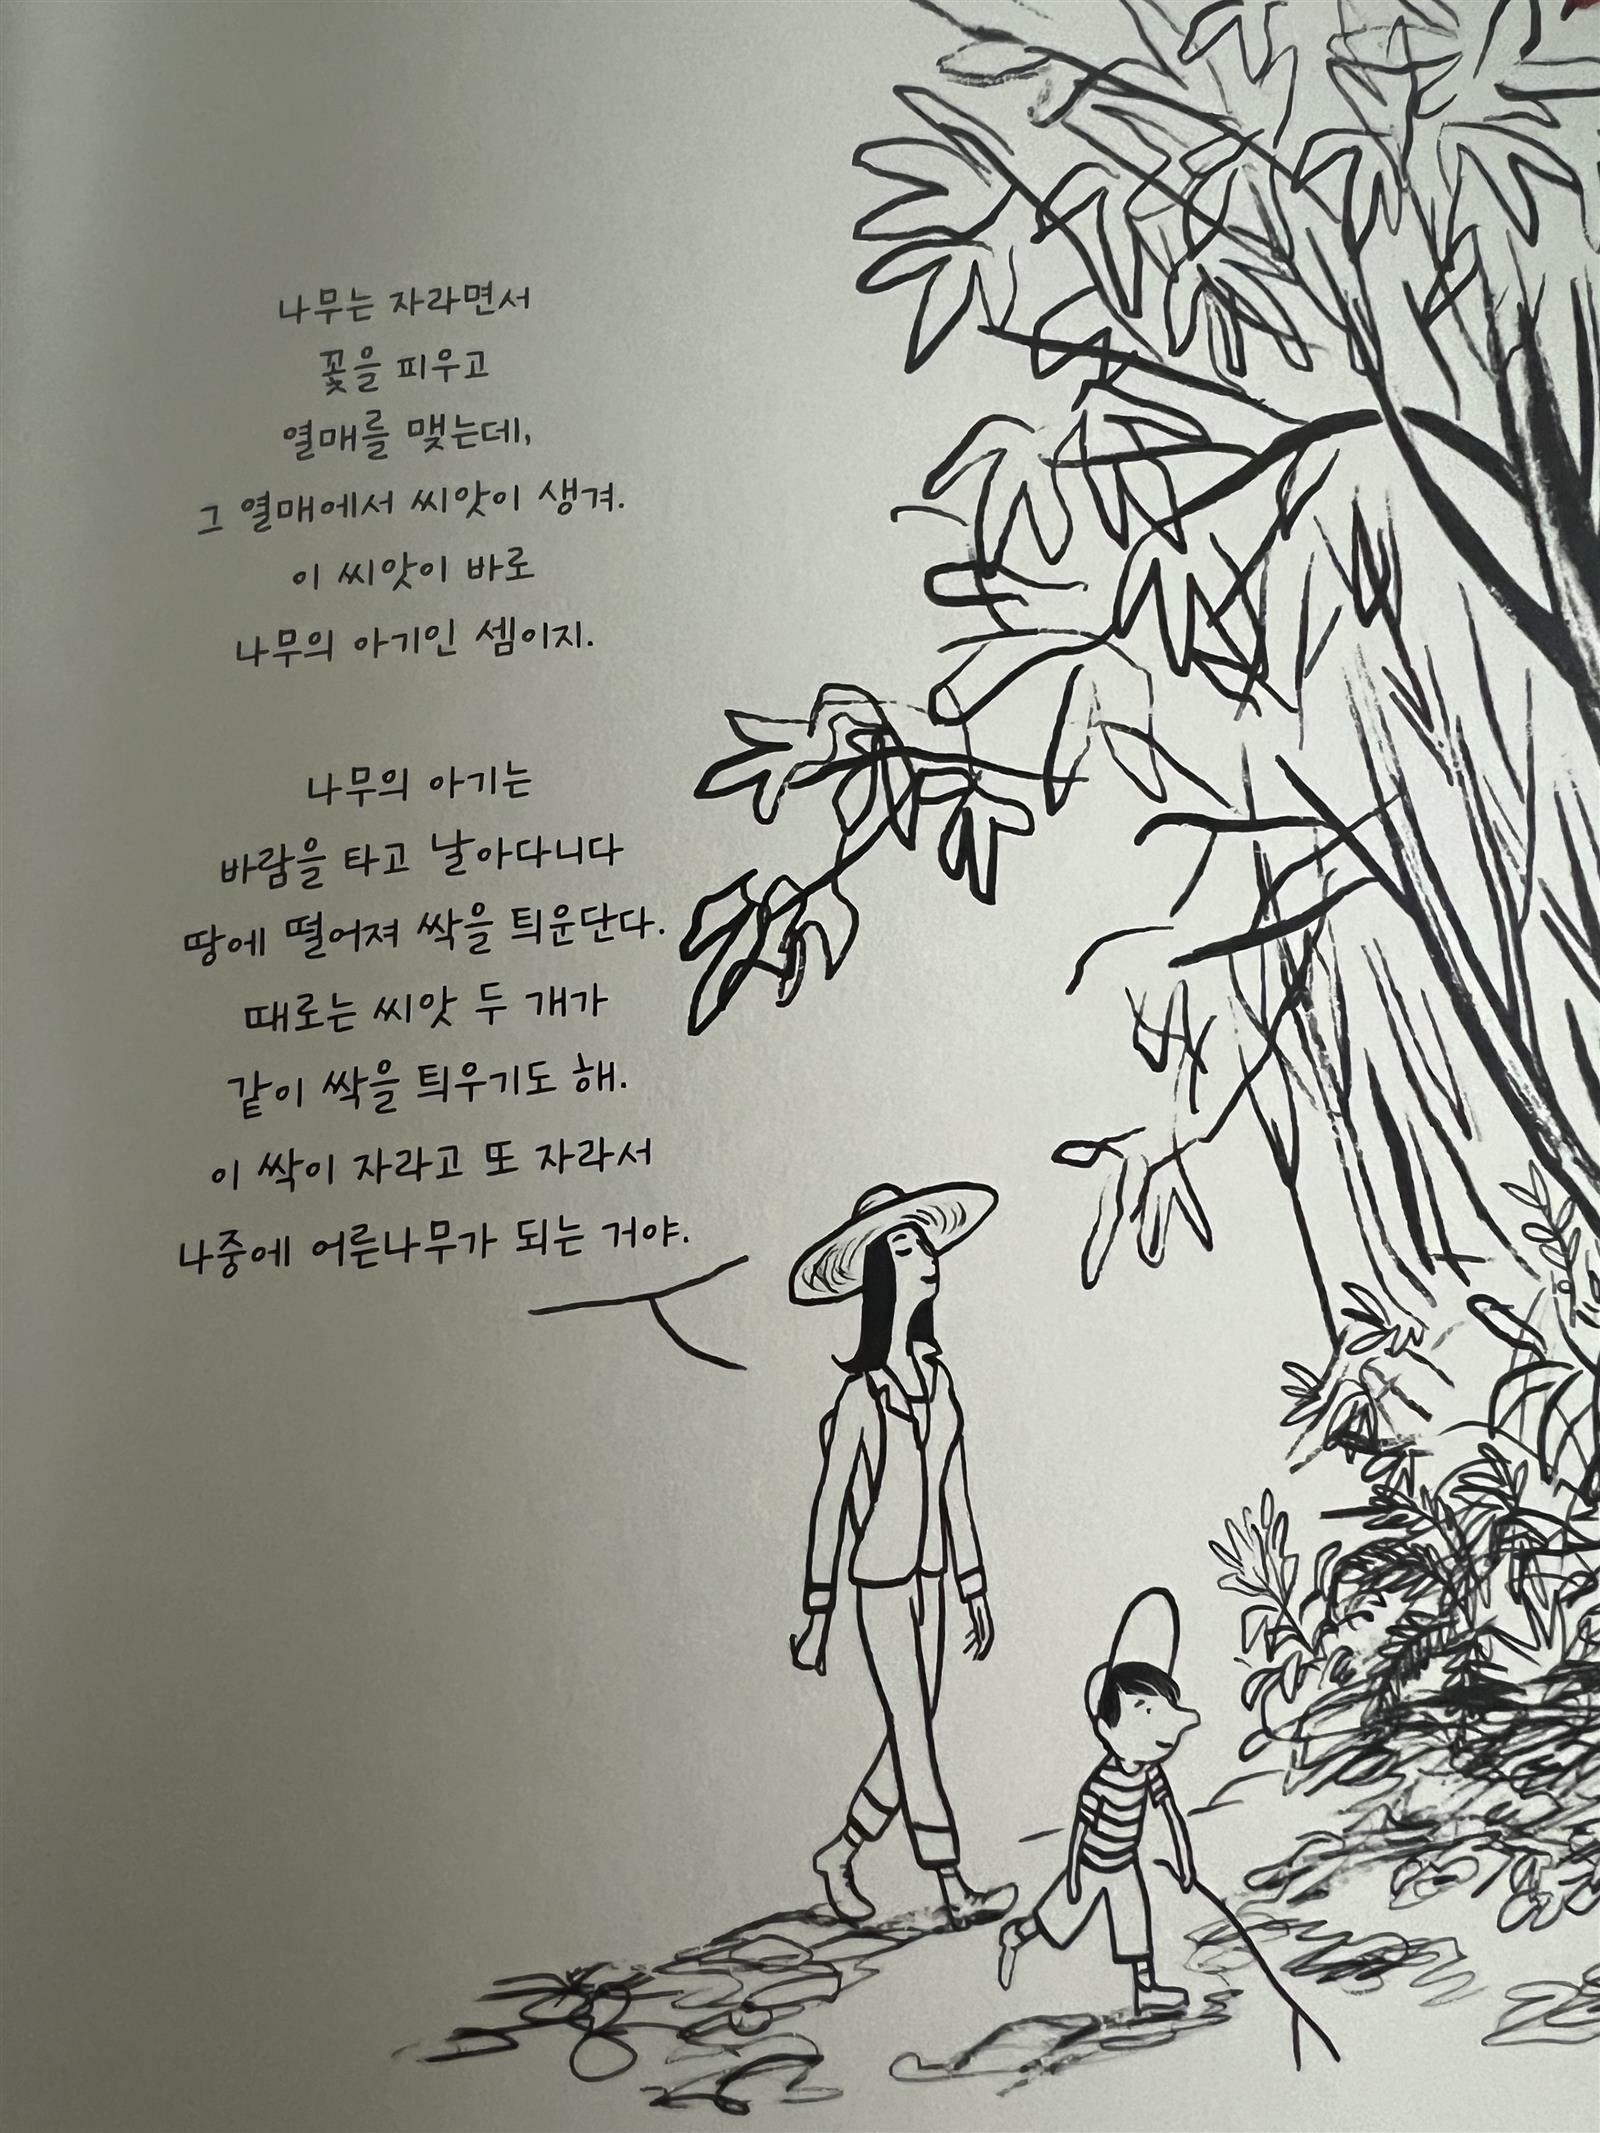 나무는 자라면서
꽃을 피우고
열매를 맺는데,
그 열매에서 씨앗이 생겨.
이 씨앗이 바로
나무의 아기인 셈이지.
나무의 아기는
바람을 타고 날아다니다
땅에 떨어져 싹을 틔운단다.
때로는 씨앗 두 개가
같이 싹을 틔우기도 해.
이 싹이 자라고 또 자라서
나중에 어른나무가 되는 거야.